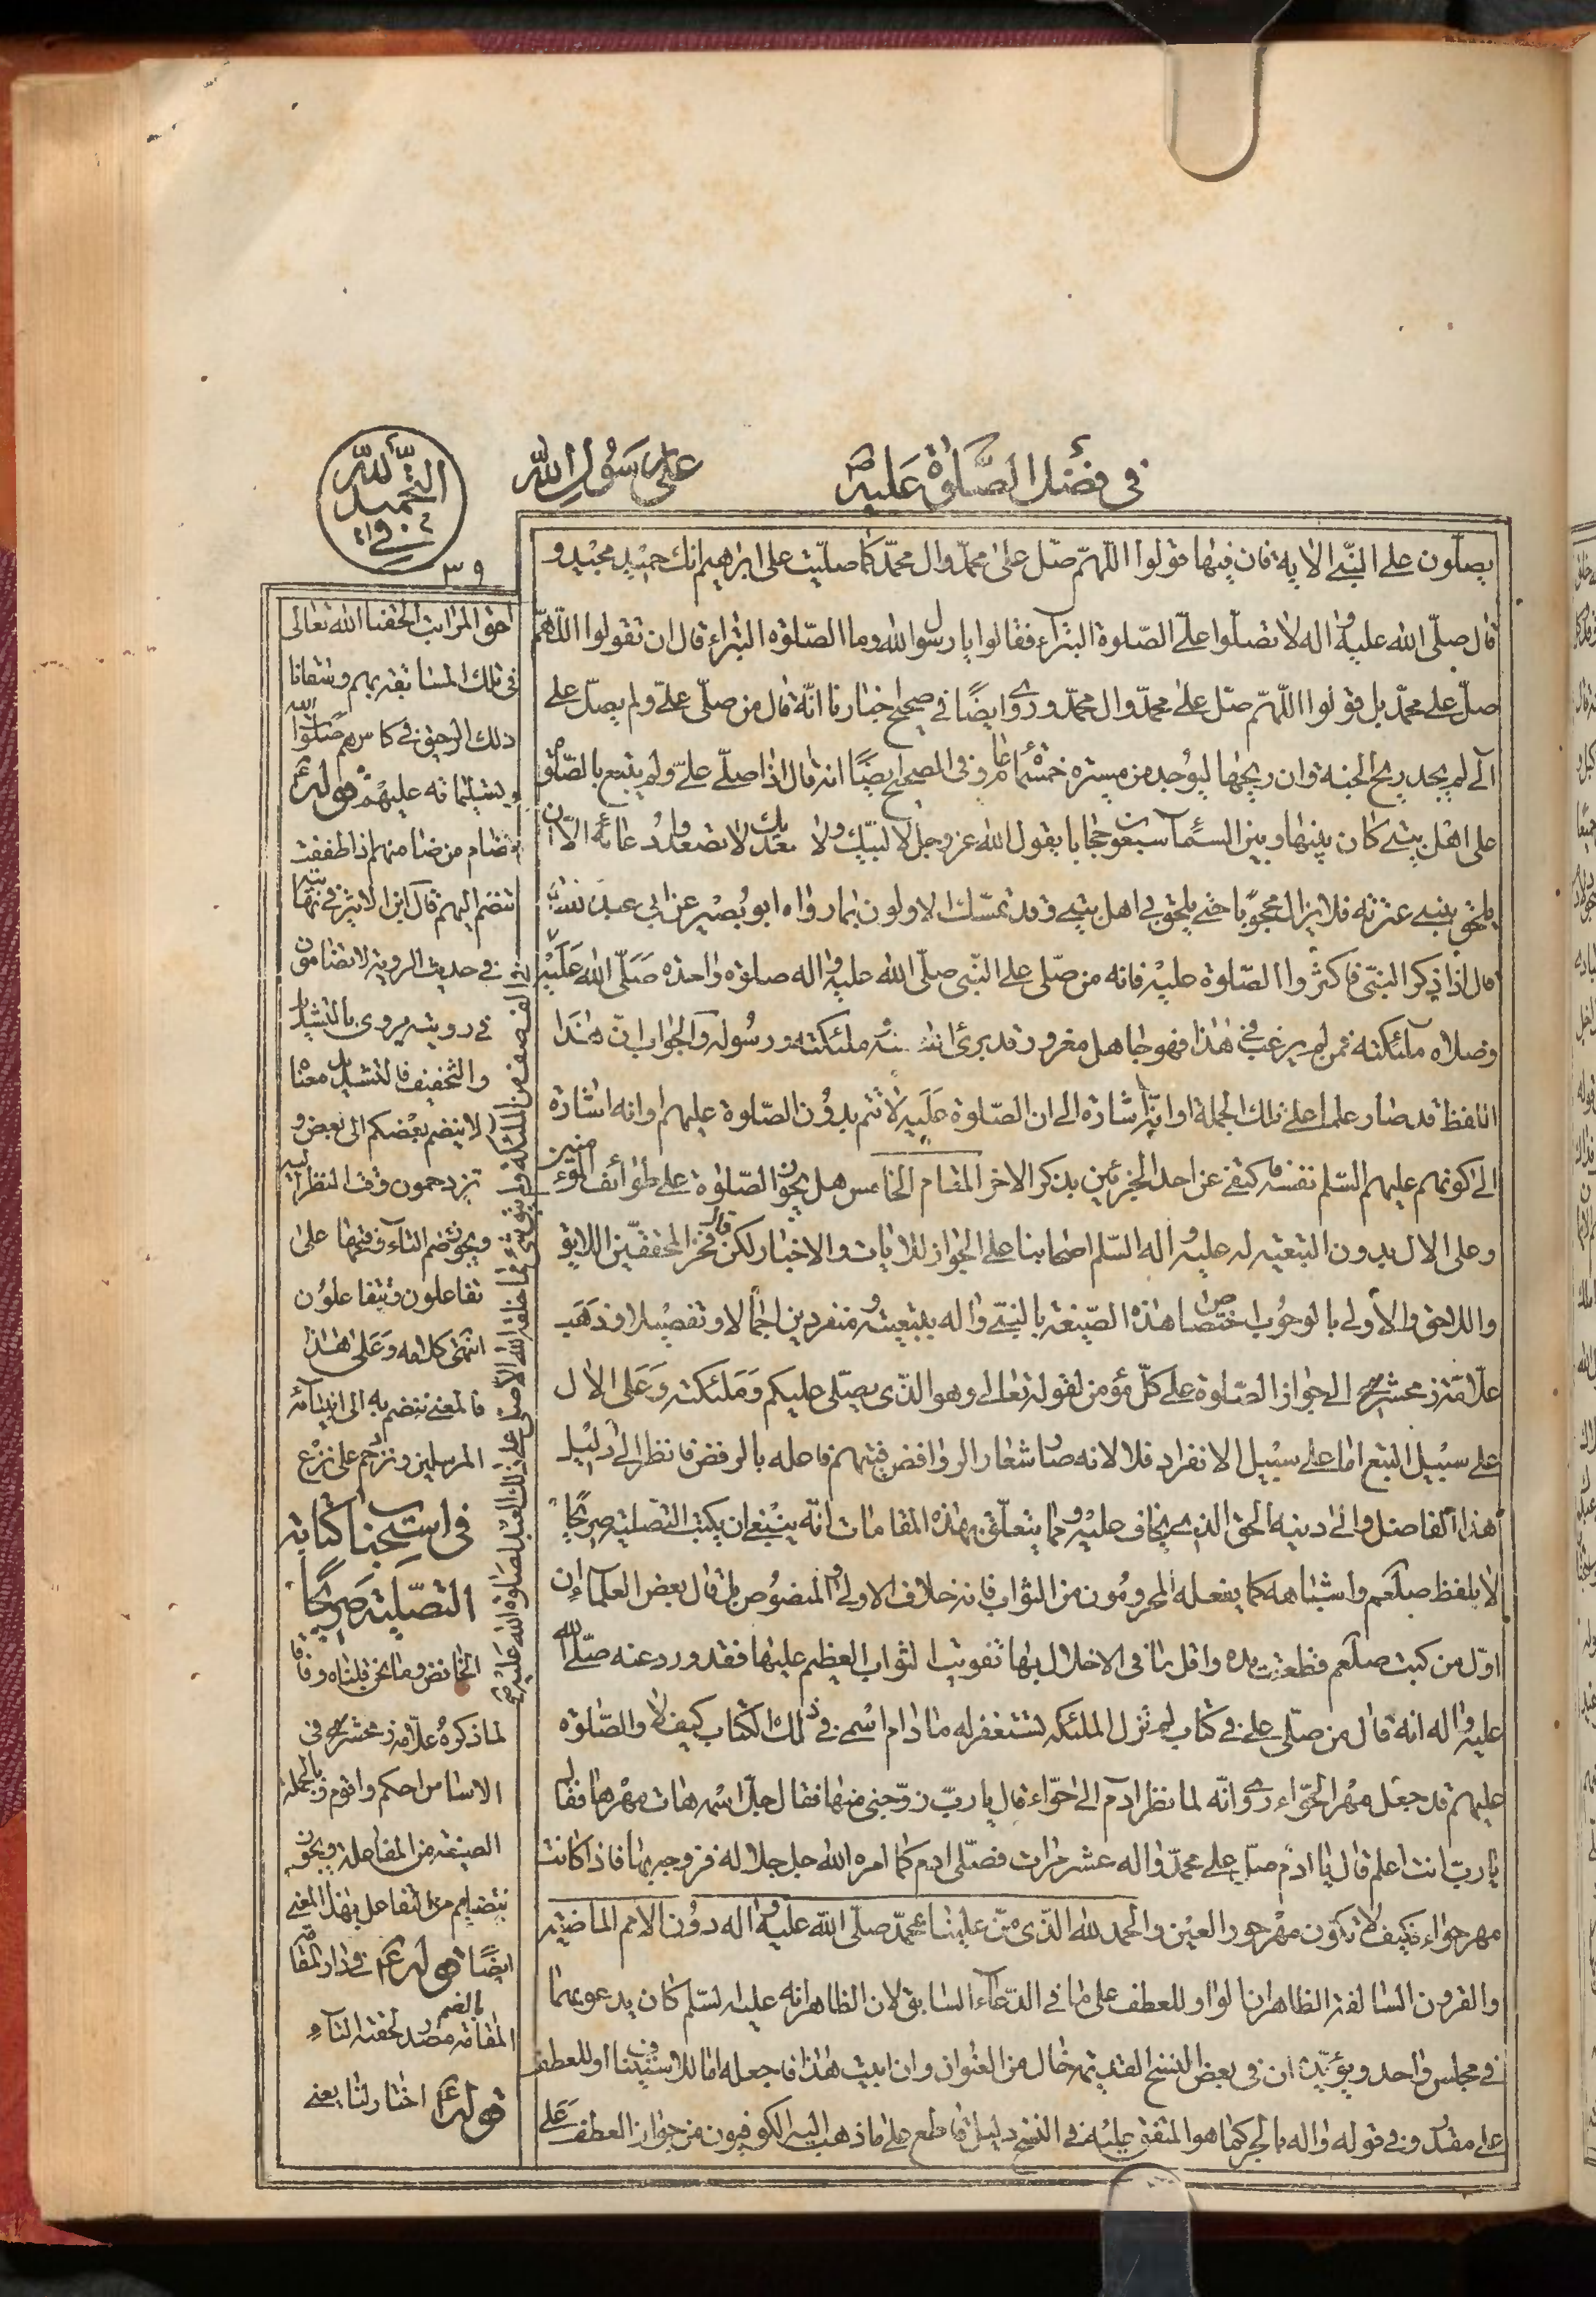 في فضل الصلوة عليه ص
على رسول الله
في التحميد لله
٣٩
يصلّون على النبي الاية فان فيها قولوا اللهمّ صلّ على محمّد وال محمّد كما صليّت على ابراهيم انك حميد مجيد و
قال صلّى الله عليه واله لا تصلّوا علىّ الصلوة البتراء فقالوا يا رسول الله وما الصّلوة البتراء قال ان تقولوا اللّهمّ
صلّ على محمّد بل قولوا اللّهمّ صلّ على محمّد وال محمّد وروى ايضًا في صحيح اخبارنا انّه قال من صلّى علىّ ولم يصلّ على
الى لم يجد ريح الجنة وان ريحها ليوجد من مسيرة خمسمأة عام وفى الصحيح ايضًا انه قال اذا صلّى علىّ ولم يتبع بالصّلوة
على اهل بيتى كان بينها وبين السّمآء سبعون حجابا يقول الله عز وجل لا لبّيك ولا سعديك لا تصعدوا دعائه الاّ ان
يلحق بنبيى عترته فلا يزال محجوبًا حتى يلحق بى اهل بيتى وقد تمسّك الاولون بما رواه ابو بصير عن ابى عبد الله
قال اذا ذكر النبىّ فاكثروا الصّلوة عليه فانه من صلّى على النّبى صلّى الله عليه واله صلوة واحدة صَلّى الله عَلَيْه
وصلاه ملئكته فمن لم يرغب فى هذا فهو جاهل مغرور قد برئ الله منه وملئكته ورسوله والجواب انّ هذا
اللفظ قد صار علما على تلك الجملة او انّه اشارة الى ان الصّلوة عَلَيه لا تتم بدون الصّلوة عليهم او انه اشارة
الى كونهم عليهم السّلم نفسه فاكتفى عن احد الجزئين بذكر الاخر المقام الخامس هل يجوز الصّلوة على طوائف المؤمنين
وعلى الال بدون التبعية له عليه واله السّلم اصحابنا على الجواز للايات والاخبار لكن قال فخر المحققّين اللايق
واللاحق والأولى بالوجوب اختصاص هذه الصّيغة بالنبىّ واله بتبعيته ومنفردين اجمالا وتفصيلا وذهب
علّامة زمخشر الى جواز الصّلوة على كلّ مؤمن لقوله تعالى وهو الذّى يصّلى عليكم وَمَلئكته وَعَلى الال
على سبيل التبع اما على سبيل الانفراد فلا لانه صار شعار الروافض فيتهم فاعله بالرفض فانظر الى دليل
هذا الفاضل والى دينه الحق الذى يخاف عليه ومما يتعلّق بهذه المقامات انّه ينبغى ان يكتب التّصلية صريحًا
لا بلفظ صلعم واشباهه كما يفعله المحرومون من الثواب فانه خلاف الاولى والمنصوص بل قال بعض العلماء ان
اوّل من كتب صلعم قطعت يده واقل ما فى الاخلال بها تفويت الثواب العظيم عليها فقد ورد عنه صلّى الله
عليه واله انه قال من صلّى علىّ فى كتاب لم تزل الملئكه تستغفر له ما دام اسمى فى ذلك الكتاب كيف لا والصّلوة
عليهم قد جعل مهر الحوّاء روى انّه لما نظر ادم الى حوّاء قال يا ربّ زوّجنى منها فقال جلّ اسمه هات مهرها فقال
يا ربّ انت اعلم قال يا ادم صلّ على محمّد واله عشر مرّات فصّلى ادم كما امره الله جل جلاله فزوجه بها فاذا كانت
مهر حواء فكيف لا تكون مهر حور العين والحمد لله الذّى منّ علينا بمحمّد صلّى الله عليه واله دون الامم الماضية
والقرون السالفة الظاهر ان الواو للعطف على ما فى الدّعاء السابق لان الظاهر انه عليه السّلم كان يدعو بهما
فى مجلس واحد ويؤيّد ان فى بعض النسخ القديمة خال من العنوان وان ابيت هذا فاجعله اما للاستيناف او للعطف
على مقدّر وفى قوله واله بالجر كما هو المتفق عليه فى النسخ دليل قاطع على ما ذهب اليه الكوفيون من جواز العطف على
احق المراتب الحقنا الله تعالى
فى تلك المسا بقربهم وسقانا
ذلك الرحيق فى كاسهم صلوات الله
وتسليماته عليهم قوله ع
نضام من ضا منهم اذا طففت
انضم اليهم قال ابن الاثير فى نهايته
فى حديث الروية لا تضامون
فى رويته يروى بالتشديد
والتخفيف فالتشديد معناه
لا ينضم بعضكم الى بعض و
تزدحمون وقت النظر اليه
ويجوز ضم التاء وفتحها على
تفاعلون وتتفاعلون
انتهى كلامه وعلى هذا
فالمعنى ننضم به الى انبيآئه
المرسلين ونزدحم على نزع
فى استحباب كتابة
التصّلية صريحًا
لما ذكره علّامة زمخشر فى
الاساس احكم واقوم وبالجملة
الصيغة من المفاعلة ويجوز
نتضام من التفاعل بهذا المعنى
ايضًا قوله ع فى دار المقامة
المقامة بالضم مصدر لحقته التآء
قوله ع اختار لنا يعنى